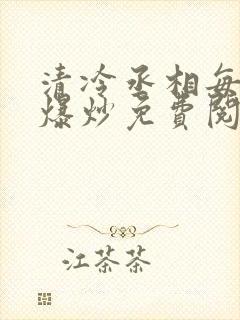 清冷丞相每
爆炒免费阅
江茶茶